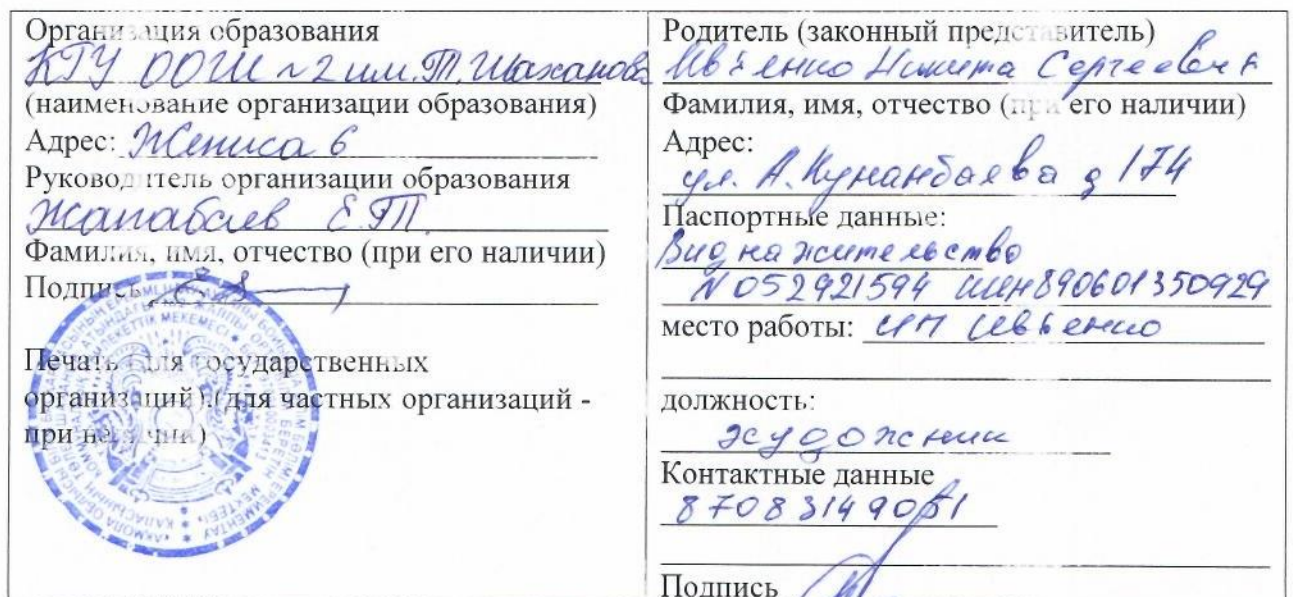 Организация образования
КГУ ООШ №2 им. Т. Шаханова
(наименование организации образования)
Адрес: Жениса 6
Руководитель организации образования
Жапабаев Е.Т.
Фамилия, имя, отчество (при его наличии)
Подпись
Печать (для государственных
организаций) (для частных организаций -
при наличии)
Родитель (законный представитель)
Ивченко Никита Сергеевич
Фамилия, имя, отчество (при его наличии)
Адрес:
ул. А. Кунанбаева д 174
Паспортные данные:
Вид на жительство
N 052921594 ИИН 890601350929
место работы: ИП Ивченко
должность:
художник
Контактные данные
87083149051
Подпись